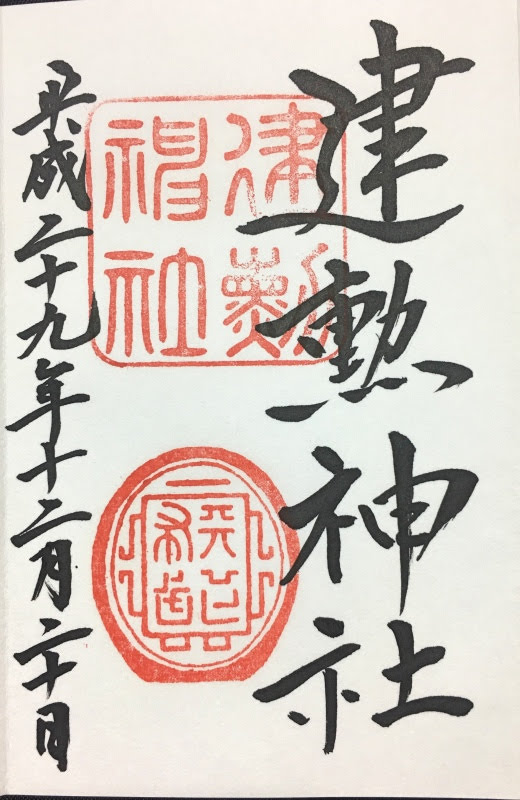 建勲神社
建勲
神社
平成二十九年十二月二十日